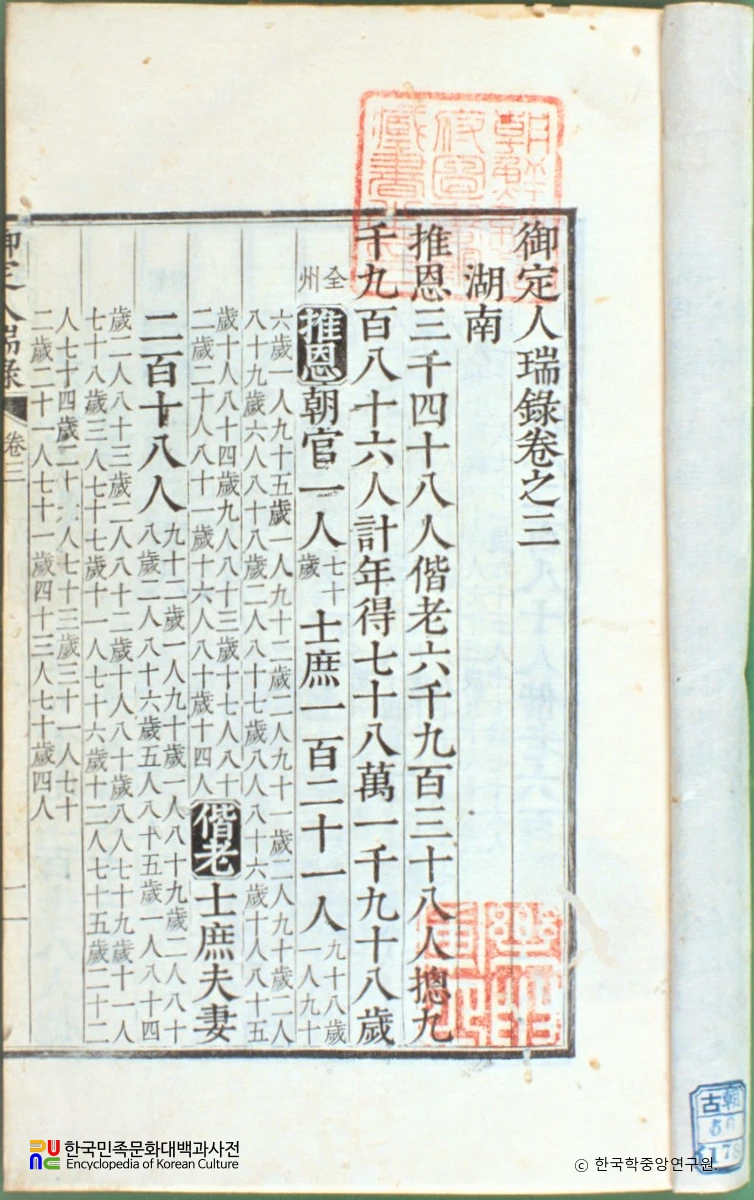 御定人瑞錄卷之三
湖南
推恩三千四十八人偕老六千九百三十八人摠九
千九百八十六人計年得七十八萬一千九十八歲
全州
推恩朝官一人七十歲士庶一百二十一人九十八歲一人九十
六歲一人九十五歲一人九十二歲二人九十一歲二人九十歲二人
八十九歲六人八十八歲二人八十七歲八人八十六歲十人八十五
歲十人八十四歲九人八十三歲十七人八十
二歲二十人八十一歲十六人八十歲十四人
偕老士庶夫妻
二百十八人
九十二歲一人九十歲一人八十九歲二人八十
八歲二人八十六歲五人八十五歲一人八十四
歲一人八十三歲二人八十二歲十人八十歲八人七十九歲十一人
七十八歲三人七十七歲十一人七十六歲十二人七十五歲二十二
人七十四歲二十人七十三歲三十一人七十
二歲二十一人七十一歲四十三人七十歲四人
御定人瑞錄
卷三
一
朝鮮總督府圖書館藏書之印
古朝
56
178
한국민족문화대백과사전
Encyclopedia of Korean Culture
ⓒ 한국학중앙연구원.